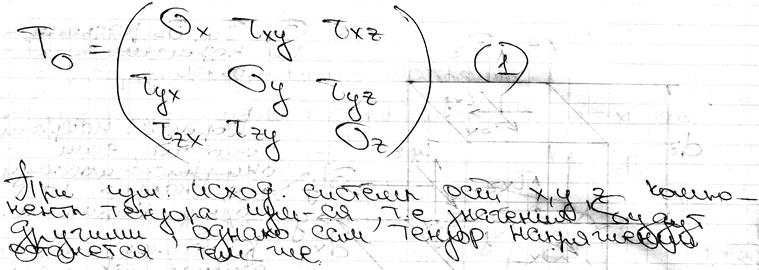 T_σ = ( σx τxy τxz
τyx σy τyz (1)
τzx τzy σz )
При изм. исход. системы осей x, y, z компо-
ненты тензора изм-ся, т.е. значения будут
другими, однако сам тензор напряжений
останется тем же.